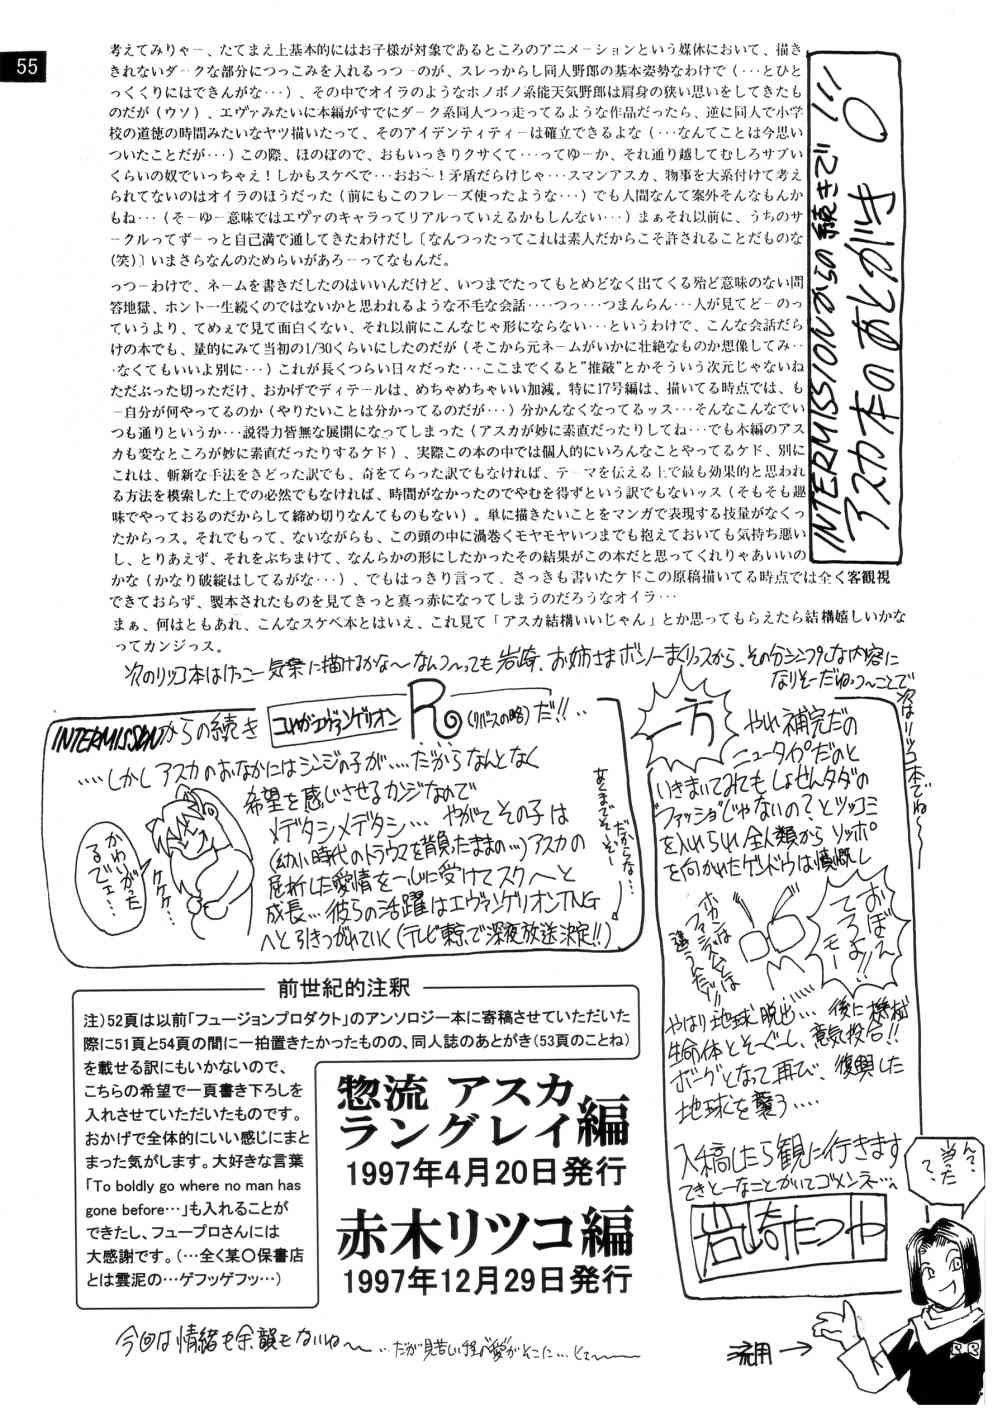 55
INTERMISSIONからの続きで!!!
アスカ本のあとがき
考えてみりゃー、たてまえ上基本的にはお子様が対象であるところのアニメーションという媒体において、描き
きれないダークな部分につっこみを入れるっつーのが、スレっからし同人野郎の基本姿勢なわけで(···とひと
っくくりにはできんがな···)、その中でオイラのようなホノボノ系能天気野郎は肩身の狭い思いをしてきたも
のだが(ウソ)、エヴァみたいに本編がすでにダーク系同人つっ走ってるような作品だったら、逆に同人で小学
校の道徳の時間みたいなヤツ描いたって、そのアイデンティティーは確立できるよな(···なんてことは今思い
ついたことだが···)この際、ほのぼので、おもいっきりクサくて···ってゆーか、それ通り越してむしろサブい
くらいの奴でいっちゃえ!しかもスケベで···おお〜!矛盾だらけじゃ···スマンアスカ、物事を大系付けて考え
られてないのはオイラのほうだった(前にもこのフレーズ使ったような···)でも人間なんて案外そんなもんか
もね···(そーゆー意味ではエヴァのキャラってリアルっていえるかもしんない···)まぁそれ以前に、うちのサ
ークルってずーっと自己満で通してきたわけだし〔なんつったってこれは素人だからこそ許されることだものな
(笑)〕いまさらなんのためらいがあろーってなもんだ。
っつーわけで、ネームを書きだしたのはいいんだけど、いつまでたってもとめどなく出てくる殆ど意味のない問
答地獄、ホント一生続くのではないかと思われるような不毛な会話····つっ···つまんらん···人が見てどーのっ
ていうより、てめぇで見て面白くない、それ以前にこんなじゃ形にならない···というわけで、こんな会話だら
けの本でも、量的にみて当初の1/30くらいにしたのだが(そこから元ネームがいかに壮絶なものか想像してみ··
··なくてもいいよ別に···)これが長くつらい日々だった···ここまでくると"推敲"とかそういう次元じゃないね
ただぶった切っただけ、おかげでディテールは、めちゃめちゃいい加減。特に17号編は、描いてる時点では、も
ー自分が何やってるのか(やりたいことは分かってるのだが···)分かんなくなってるッス···そんなこんなでい
つも通りというか···説得力皆無な展開になってしまった(アスカが妙に素直だったりしてね···でも本編のアス
カも変なところが妙に素直だったりするケド)、実際この本の中では個人的にいろんなことやってるケド、別に
これは、斬新な手法をきどった訳でも、奇をてらった訳でもなければ、テーマを伝える上で最も効果的と思われ
る方法を模索した上での必然でもなければ、時間がなかったのでやむを得ずという訳でもないッス(そもそも趣
味でやっておるのだからして締め切りなんてものもない)。単に描きたいことをマンガで表現する技量がなくっ
たからっス。それでもって、ないながらも、この頭の中に渦巻くモヤモヤいつまでも抱えておいても気持ち悪い
し、とりあえず、それをぶちまけて、なんらかの形にしたかったその結果がこの本だと思ってくれりゃあいいの
かな(かなり破綻はしてるがな···)、でもはっきり言って、さっきも書いたケドこの原稿描いてる時点では全く客観視
できておらず、製本されたものを見てきっと真っ赤になってしまうのだろうなオイラ···
まぁ、何はともあれ、こんなスケベ本とはいえ、これ見て「アスカ結構いいじゃん」とか思ってもらえたら結構嬉しいかな
ってカンジっス。
次のリツコ本はけっこー気楽に描けるかな〜なんつ〜っても岩崎、お姉さまボンノーまくりっスから、その分シンプルな内容に
なりそーだねっつ〜ことで
次はリツコ本でね〜
INTERMISSIONからの続き
R(リバースの略)だ!!··
····しかしアスカのおなかにはシンジの子が····だからなんとなく
希望を感じさせるカンジなので
メデタシメデタシ··· やがてその子は
(幼い時代のトラウマを背負ったままの···)アスカの
屈折した愛情を一心に受けてスクスクと
成長···彼らの活躍はエヴァンゲリオンTNG
へと引きつがれていく(テレビ東京で深夜放送決定!!)
だからな···
かわいがったるでェ···
ケケケ···
一方
やれ補完だの
ニュータイプだのと
いきまいてみても しょせんタダの
ファッショじゃないの?とツッコミ
を入れられ全人類からソッポ
を向かれたゲンドウは憤慨し
おぼえてろよ!!
やはり地球脱出···· 後に機械
生命体とそーぐーし、意気投合!!
ボーグとなって再び、復興した
地球を襲う····
入稿したら観に行きます
てきとーなことかいてゴメンネ···
岩崎たつや
前世紀的注釈
注)52頁は以前「フュージョンプロダクト」のアンソロジー本に寄稿させていただいた
際に51頁と54頁の間に一拍置きたかったものの、同人誌のあとがき(53頁のことね)
を載せる訳にもいかないので、
こちらの希望で一頁書き下ろしを
入れさせていただいたものです。
おかげで全体的にいい感じにまと
まった気がします。大好きな言葉
「To boldly go where no man has
gone before…」も入れることが
できたし、フュープロさんには
大感謝です。(…全く某〇保書店
とは雲泥の…ゲフッゲフッ…)
惣流 アスカ
ラングレイ編
1997年4月20日発行
赤木リツコ編
1997年12月29日発行
今回は情緒も余韻もないね〜
流用→